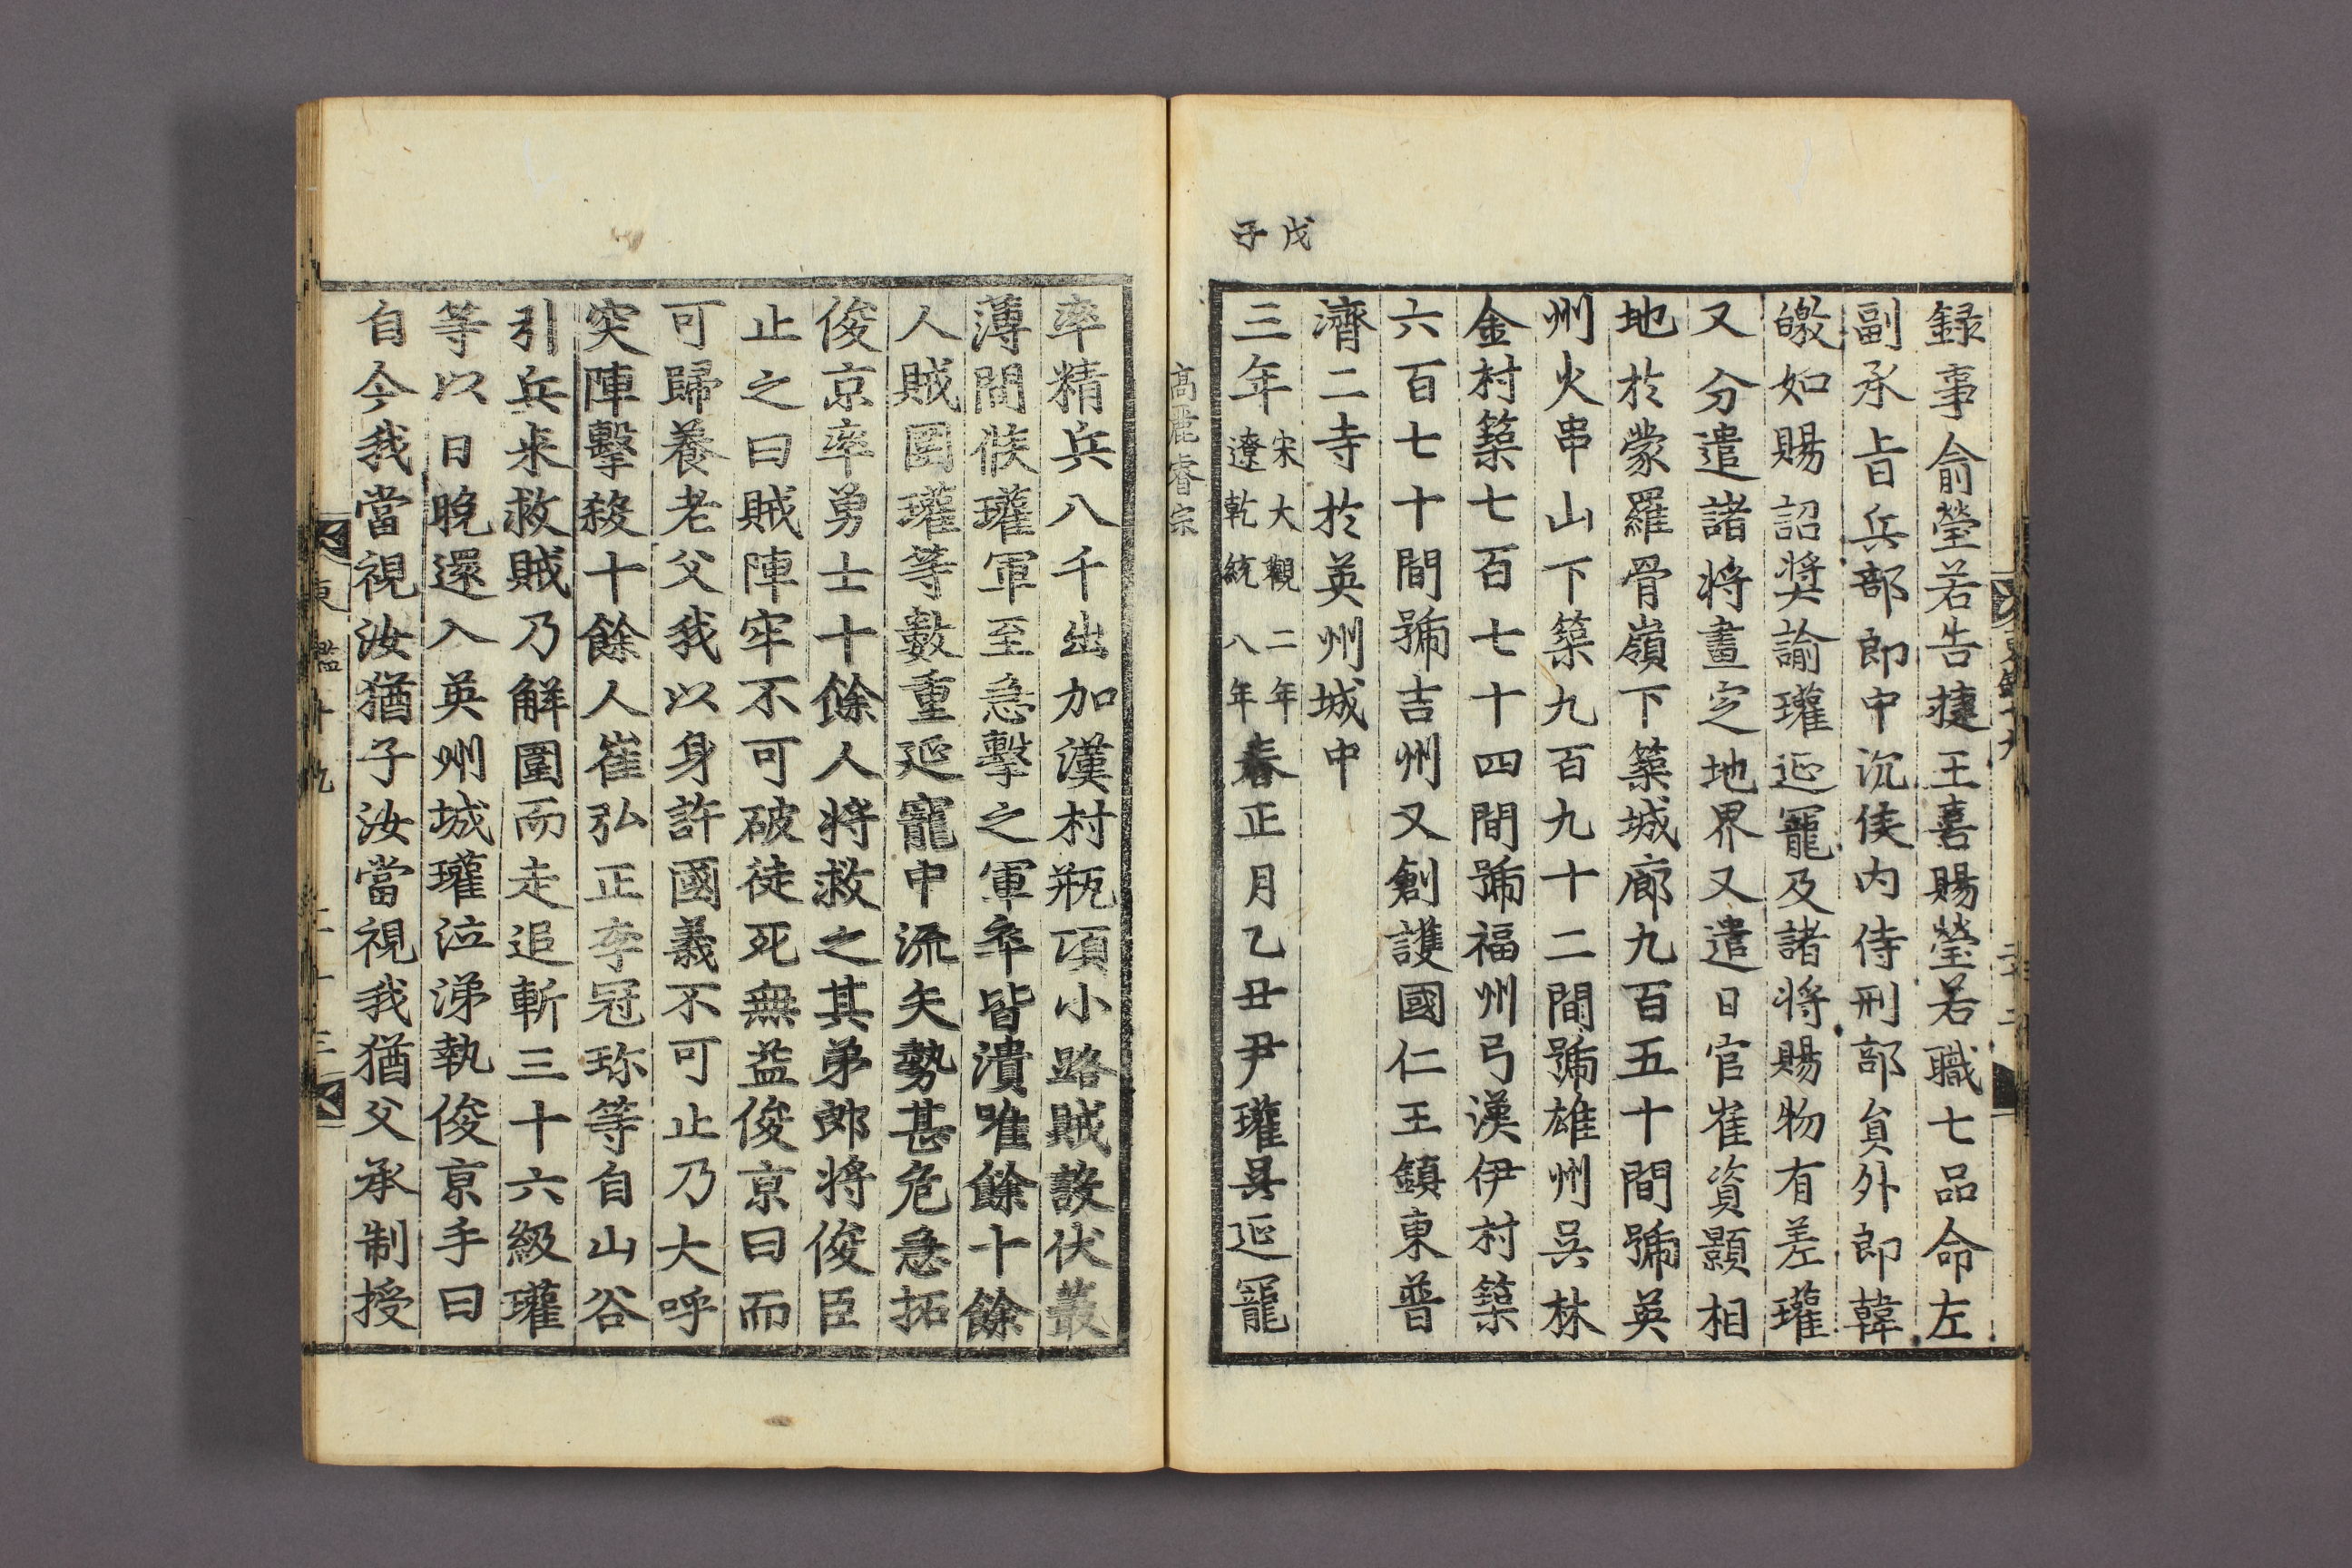 戊子
録事俞瑩若告捷王喜賜瑩若職七品命左
副承旨兵部郎中沉侯内侍刑部貟外郎韓
皦如賜詔奬諭瓘延寵及諸將賜物有差瓘
又分遣諸將畫定地界又遣日官崔資顥相
地於蒙羅骨嶺下築城廊九百五十間號英
州火串山下築九百九十二間號雄州吳林
金村築七百七十四間號福州弓漢伊村築
六百七十間號吉州又創護國仁王鎮東普
濟二寺於英州城中
三年宋大觀二年遼乾統八年春正月乙丑尹瓘吳延寵
高麗睿宗
率精兵八千出加漢村瓶項小路賊設伏叢
薄間候瓘軍至急擊之軍卒皆潰唯餘十餘
人賊圍瓘等數重延寵中流矢勢甚危急拓
俊京率勇士十餘人將救之其弟郎將俊臣
止之曰賊陣牢不可破徒死無益俊京曰而
可歸養老父我以身許國義不可止乃大呼
突陣擊殺十餘人崔弘正李冠珎等自山谷
引兵来救賊乃解圍而走追斬三十六級瓘
等以日晚還入英州城瓘泣涕執俊京手曰
自今我當視汝猶子汝當視我猶父承制授